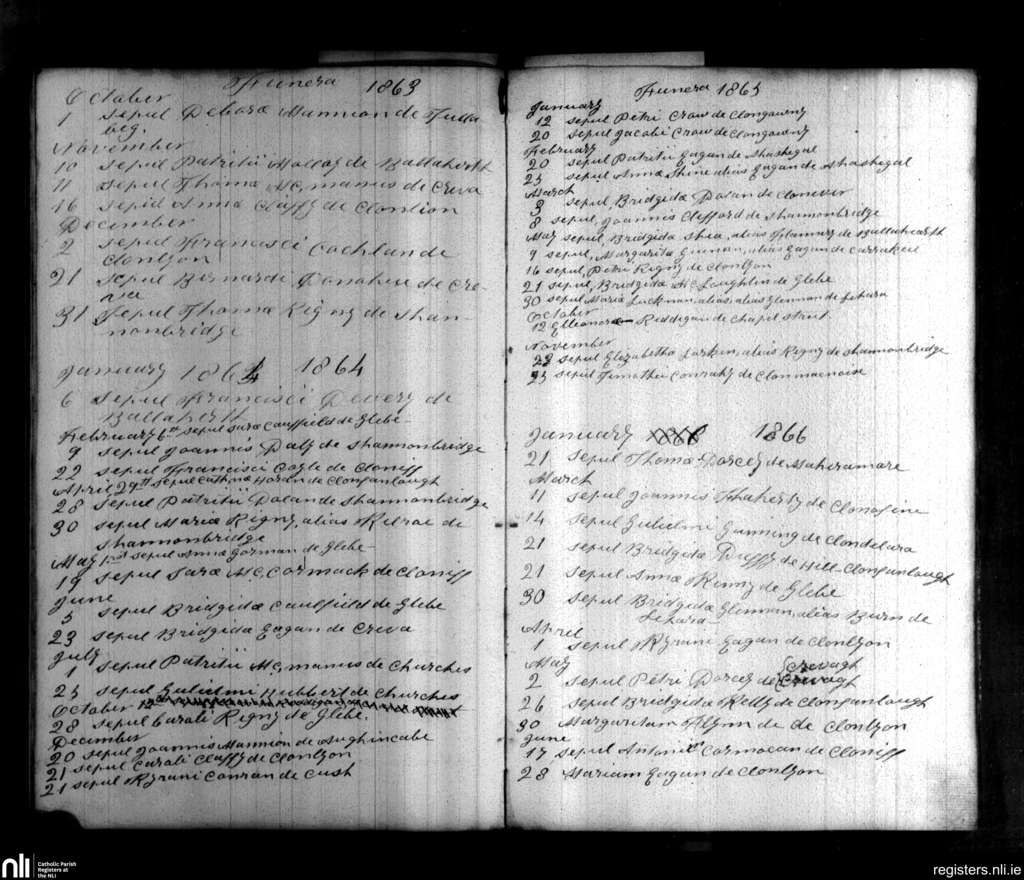 Funera 1863
October
1 Sepul Deborae Mannion de Tulla
beg.
November
10 Sepul Patritii Molloy de Ballaherth
11 Sepul Thoma Mc,manus de Creva
16 Sepul Anna Claffy de Clonlion
December
2 Sepul Francisci Cochlan de
Clonlyon
21 Sepul Bernardi Donahue de Cre-
va
31 Sepul Thoma Rigny de Shan-
nonbridge
January 1864 1864
6 Sepul Francisci Devery de
Ballaherth
February 6th Sepul Sara Caulfield de Glebe-
9 Sepul Joannis Daly de Shannonbridge
22 Sepul Francisci Coyle de Cloniff
April 29th Sepul Cath,na Horan de Clonfanlough
28 Sepul Patritii Dolan de Shannonbridge
30 Sepul Maria Rigny, alias Kilroe de
Shannonbridge
May 1st Sepul Anna Gorman de Glebe-
19 Sepul Sara Mc,Cormack de Cloniff
June
5 Sepul Bridgida Caulfield de Glebe
23 Sepul Bridgida Eagan de Creva
July
1 Sepul Patritii Mc,manus de Churches
25 Sepul Gulielmi Hubbert de Churches
October
28 Sepul Caroli Rigny de Glebe.
December
20 Sepul Joannis Mannion de Aughincabe
21 Sepul Caroli Claffy de Clonlyon
21 Sepul Kyrani Conran de Cush
Funera 1865
January
12 Sepul Petri Crow de Clongawny
20 Sepul Jacobi Crow de Clongawny
February
20 Sepul Patritii Eagan de Shashegal
25 Sepul Anna Shine alias Eagan de Shashegal
March
3 Sepul, Bridgida Dolan de Clonever
8 Sepul, Joannis Clifford de Shannonbridge
May Sepul, Bridgida Shea, alias Flannery de Ballahearth
9 Sepul, Margarita Guinan, alias Eagan de Carrakeil
16 Sepul, Petri Rigny de Clonlyon
21 Sepul, Bridgida Mc,Loughlin de Glebe
30 Sepul Maria Luckman, alias, alias Glennan de Lehara
October
12 Elleonora Reddigan de Chapel Street
November
22 Sepul Elizabetha Larkin, alias Rigny de Shannonbridge
23 Sepul Timothei Conrahy de Clonmacnoise
January 1866
21 Sepul Thoma Dorcey de Maheramore
March
11 Sepul Joannis Flaherty de Clonafine
14 Sepul Gulielmi Gunning de Clondelara
21 Sepul Bridgida Duffy de Hill-Clonfanlough
21 Sepul Anna Kenny de Glebe
30 Sepul Bridgida Glennan, alias Burn de
Lehara
April
1 Sepul Kyrani Eagan de Clonlyon
May
2 Sepul Petri Dorcey de Crevagh
Screvagh
26 Sepul Bridgida Kelly de Clonfanlough
30 Margaritam Flynn de de Clonlyon
June
17 Sepul Antonii Cormacan de Cloniff
28 Mariam Eagan de Clonlyon
nli Catholic Parish
Registers at
the NLI
registers.nli.ie